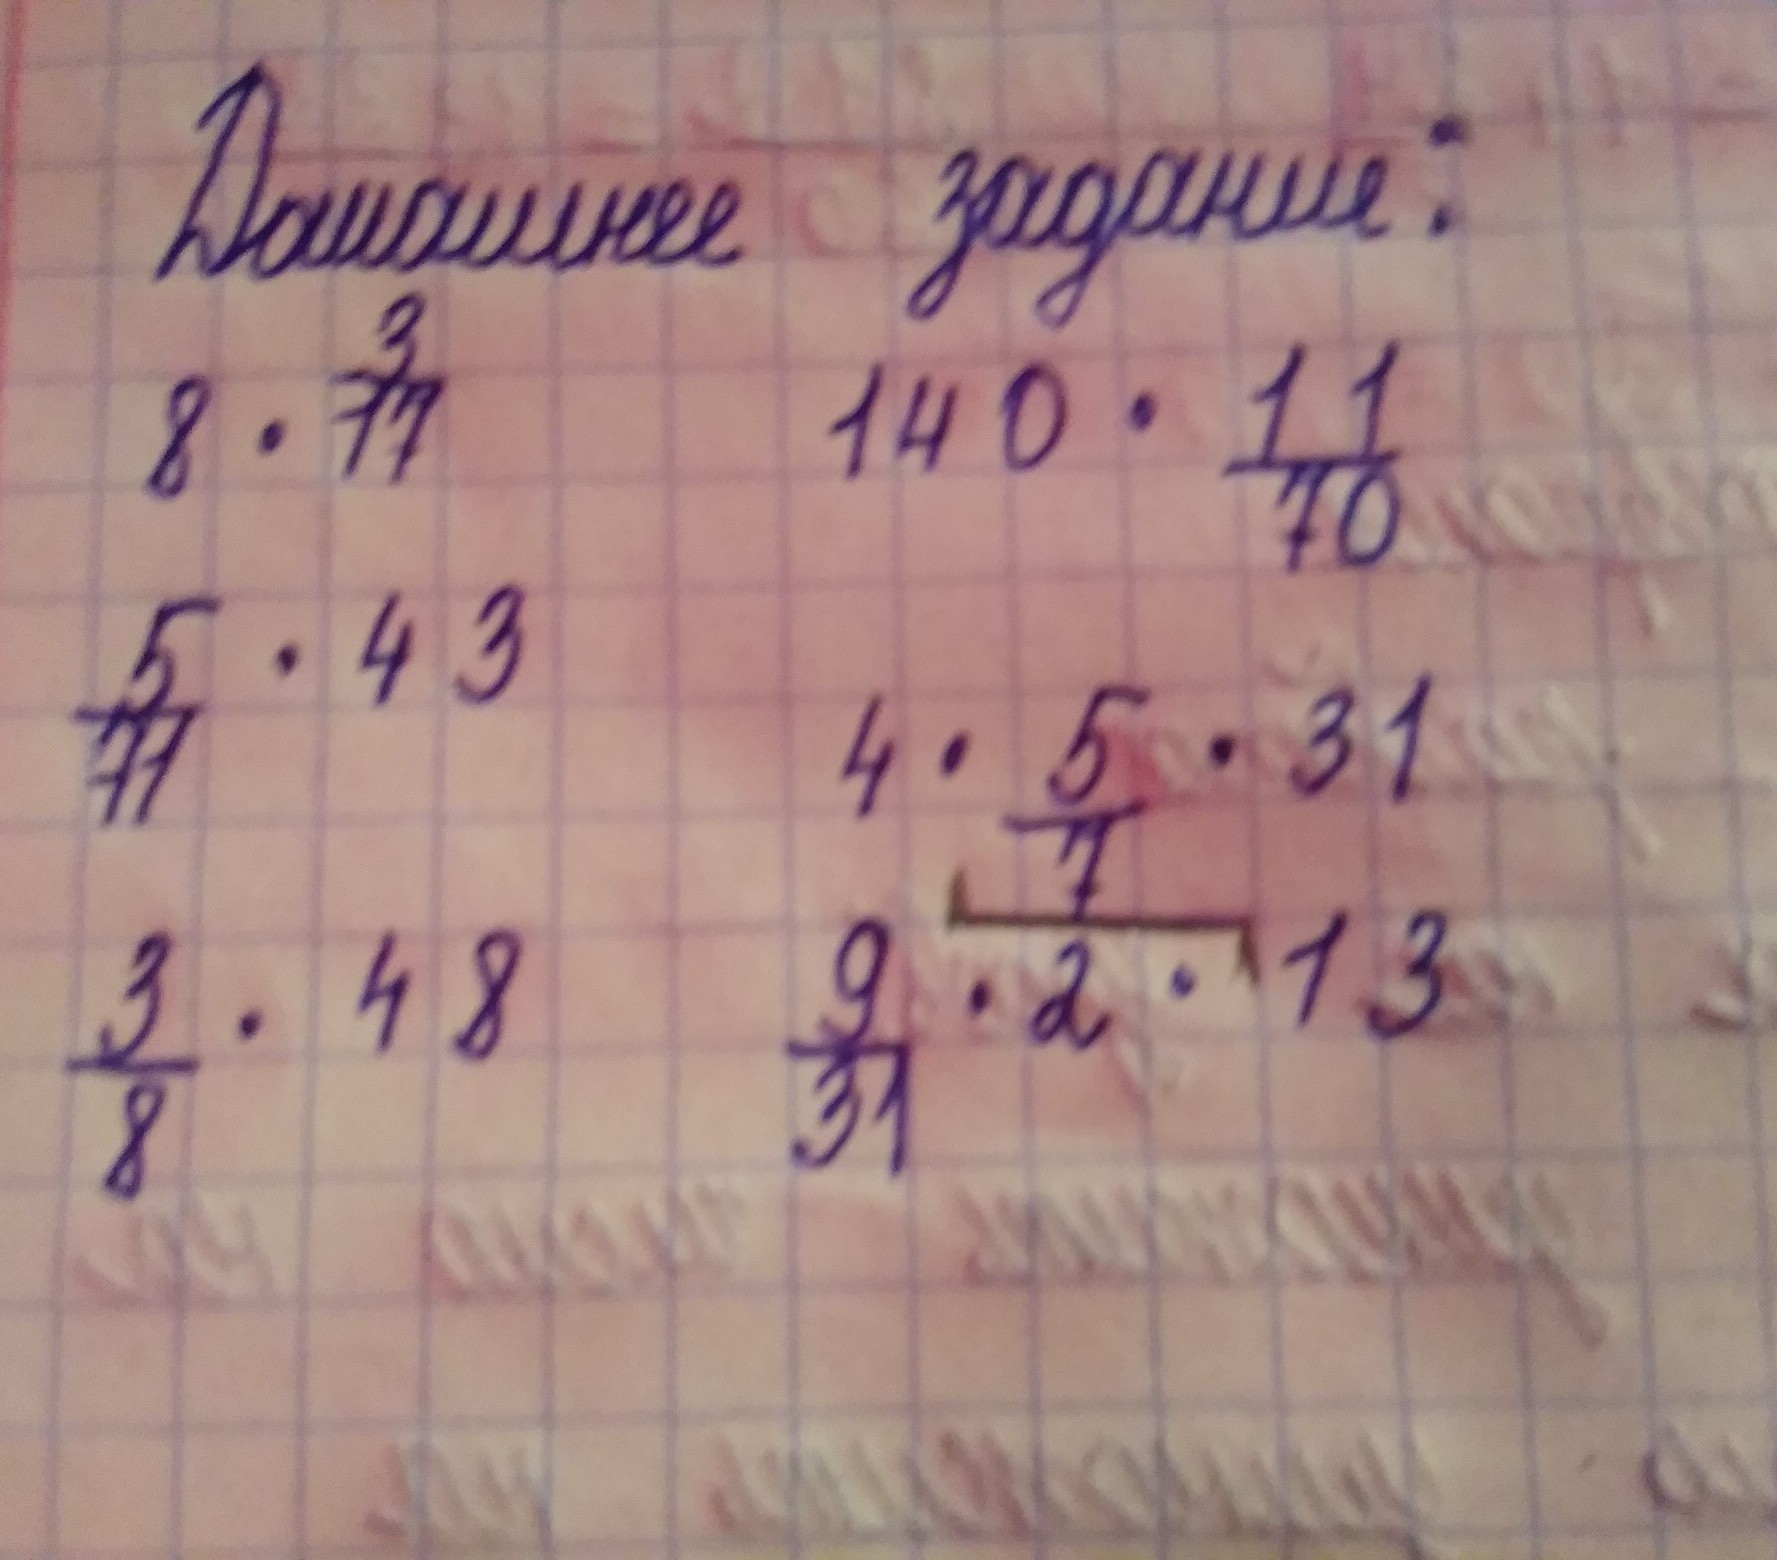 Домашнее задание:
8 · 3/77 140 · 11/70
5/71 · 43 4 · 5/7 · 31
3/8 · 48 9/31 · 2 · 13